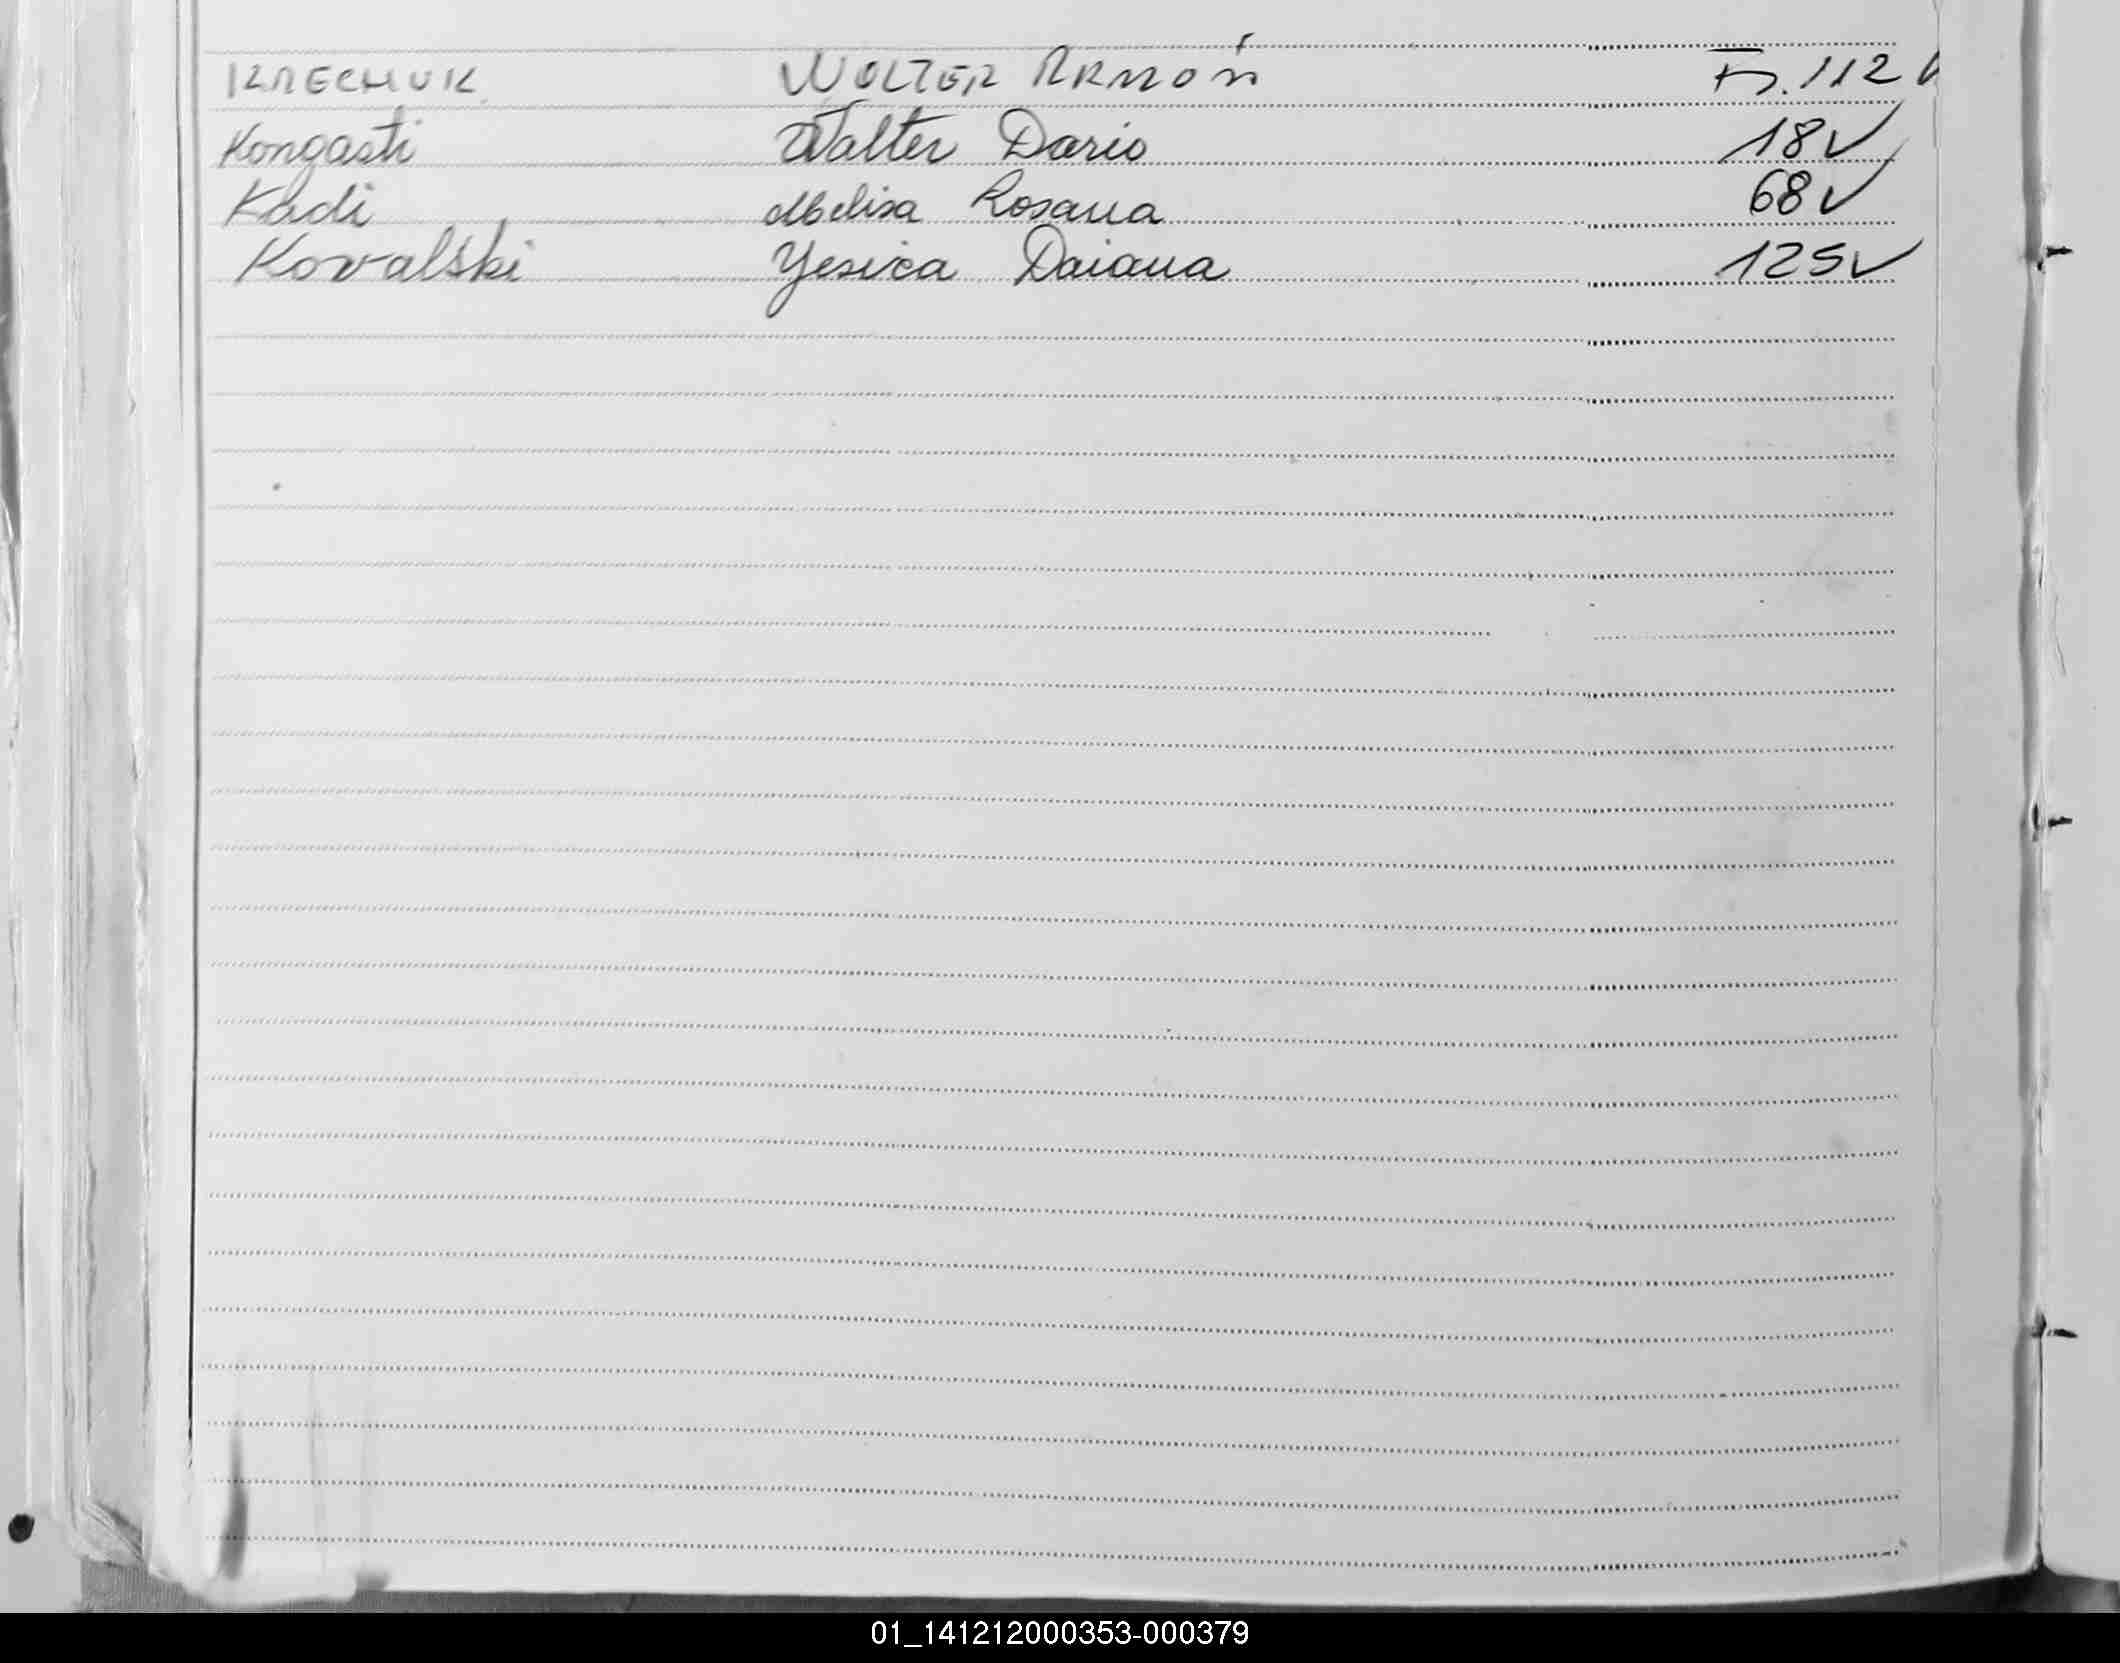 KRECHUK WOLTER RAMÓN Fs. 112 V
Kongasti Walter Dario 18V
Kadi Melisa Rosana 68V
Kovalski Yesica Daiana 125V
01_141212000353-000379